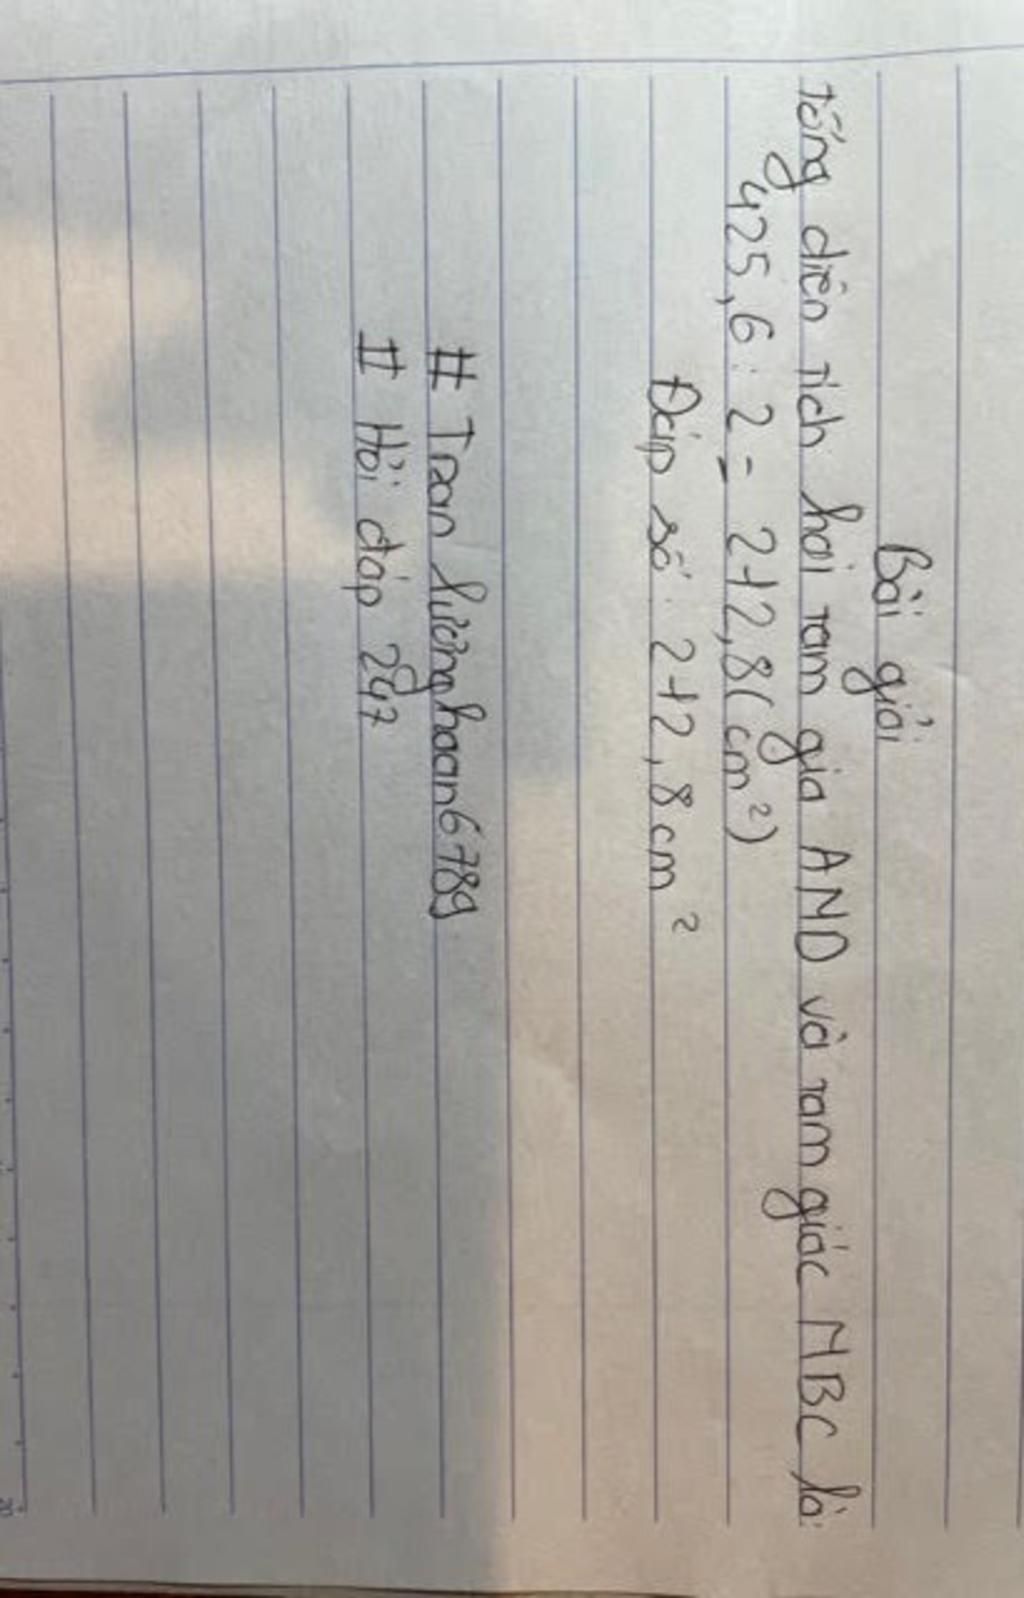 Bài giải
Tổng diện tích hai tam gia AMD và tam giác MBC là:
425,6 : 2 = 212,8 (cm²)
Đáp số : 212,8 cm²
# Tran lương hoan6789
# Hỏi đáp 247